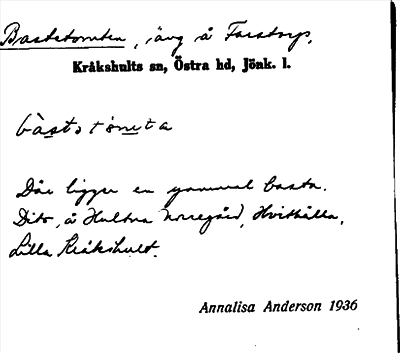 Bastetomten, äng å Farstorp,
Kråkshults sn, Östra hd, Jönk. l.
bàstotòmta
Där ligger en gammal basta.
Dito, å Hultna Norregård, Hvithålla,
Lilla Kråkshult.
Annalisa Anderson 1936